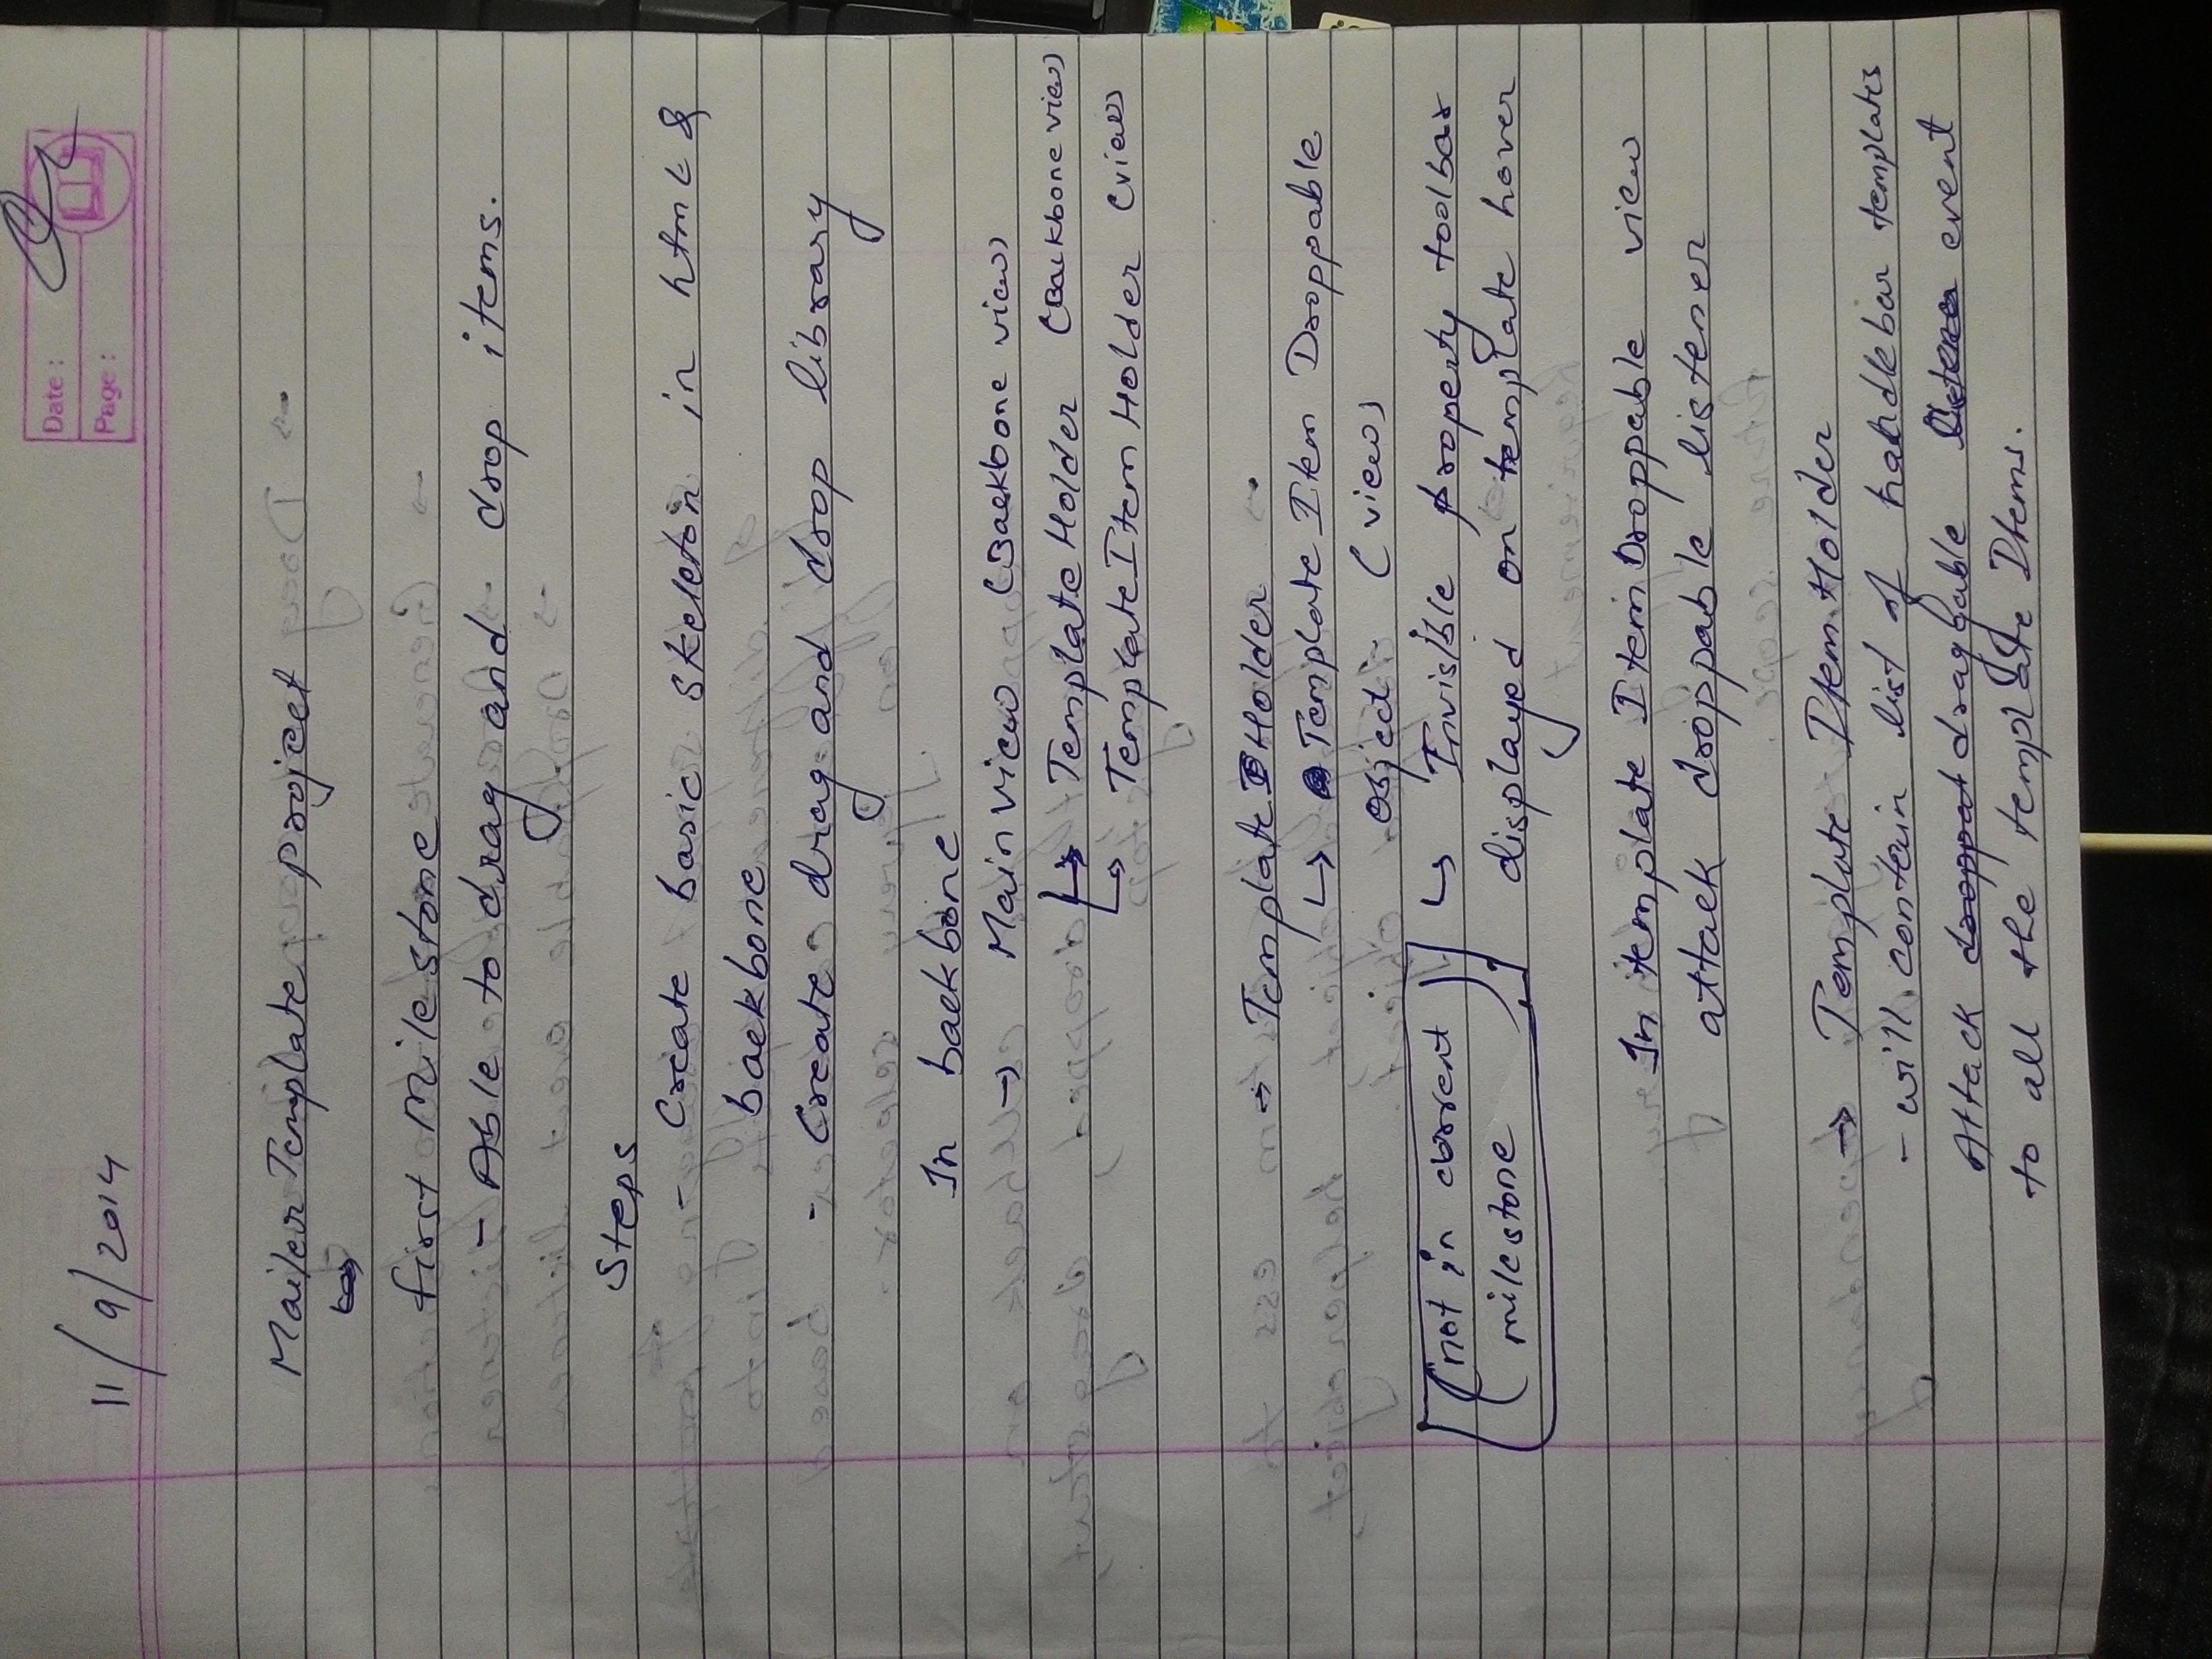 Date :
Page :
11/9/2014
Mailer Template project
first Milestone
- Able to drag and drop items.
Steps
- Create basic skeleton in html &
backbone
- Create drag and drop library
In backbone
→ Main view (Backbone view)
↳ Template Holder (Backbone view)
↳ Template Item Holder (view)
→ Template Holder
↳ Template Item Droppable
object (view)
(not in current
milestone)
↳ Invisible property toolbar
displayed on template hover
In template Item Droppable view
attack droppable listener
→ Template Item Holder
- will contain list of handlebar templates
Attack droppat draggable listener event
to all the template Items.